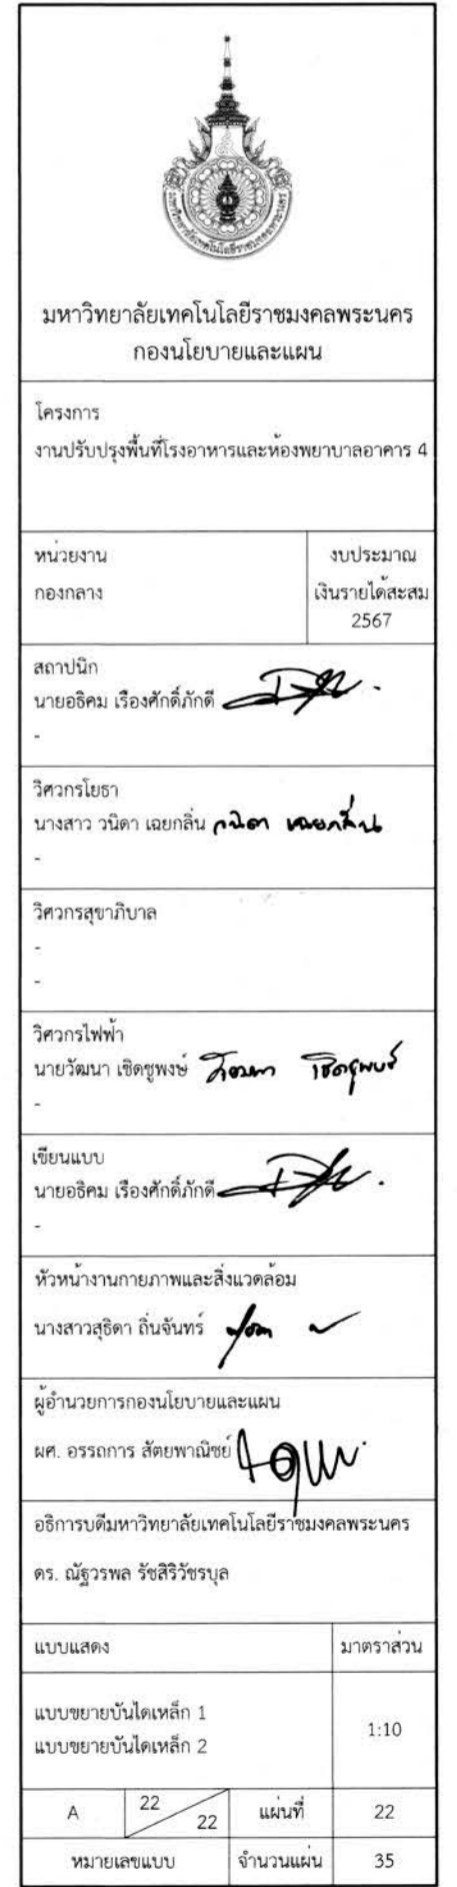 มหาวิทยาลัยเทคโนโลยีราชมงคลพระนคร
มหาวิทยาลัยเทคโนโลยีราชมงคลพระนคร
กองนโยบายและแผน
โครงการ
งานปรับปรุงพื้นที่โรงอาหารและห้องพยาบาลอาคาร 4
หน่วยงาน
กองกลาง
งบประมาณ
เงินรายได้สะสม
2567
สถาปนิก
นายอธิคม เรืองศักดิ์ภักดี
-
วิศวกรโยธา
นางสาว วนิดา เฉยกลิ่น วนิดา เฉยกลิ่น
-
วิศวกรสุขาภิบาล
-
-
วิศวกรไฟฟ้า
นายวัฒนา เชิดชูพงษ์ วัฒนา เชิดชูพงษ์
-
เขียนแบบ
นายอธิคม เรืองศักดิ์ภักดี
-
หัวหน้างานกายภาพและสิ่งแวดล้อม
นางสาวสุธิดา ถิ่นจันทร์
ผู้อำนวยการกองนโยบายและแผน
ผศ. อรรถการ สัตยพาณิชย์
อธิการบดีมหาวิทยาลัยเทคโนโลยีราชมงคลพระนคร
ดร. ณัฐวรพล รัชสิริวัชรบุล
แบบแสดง
มาตราส่วน
แบบขยายบันไดเหล็ก 1
แบบขยายบันไดเหล็ก 2
1:10
A
22
22
แผ่นที่
22
หมายเลขแบบ
จำนวนแผ่น
35